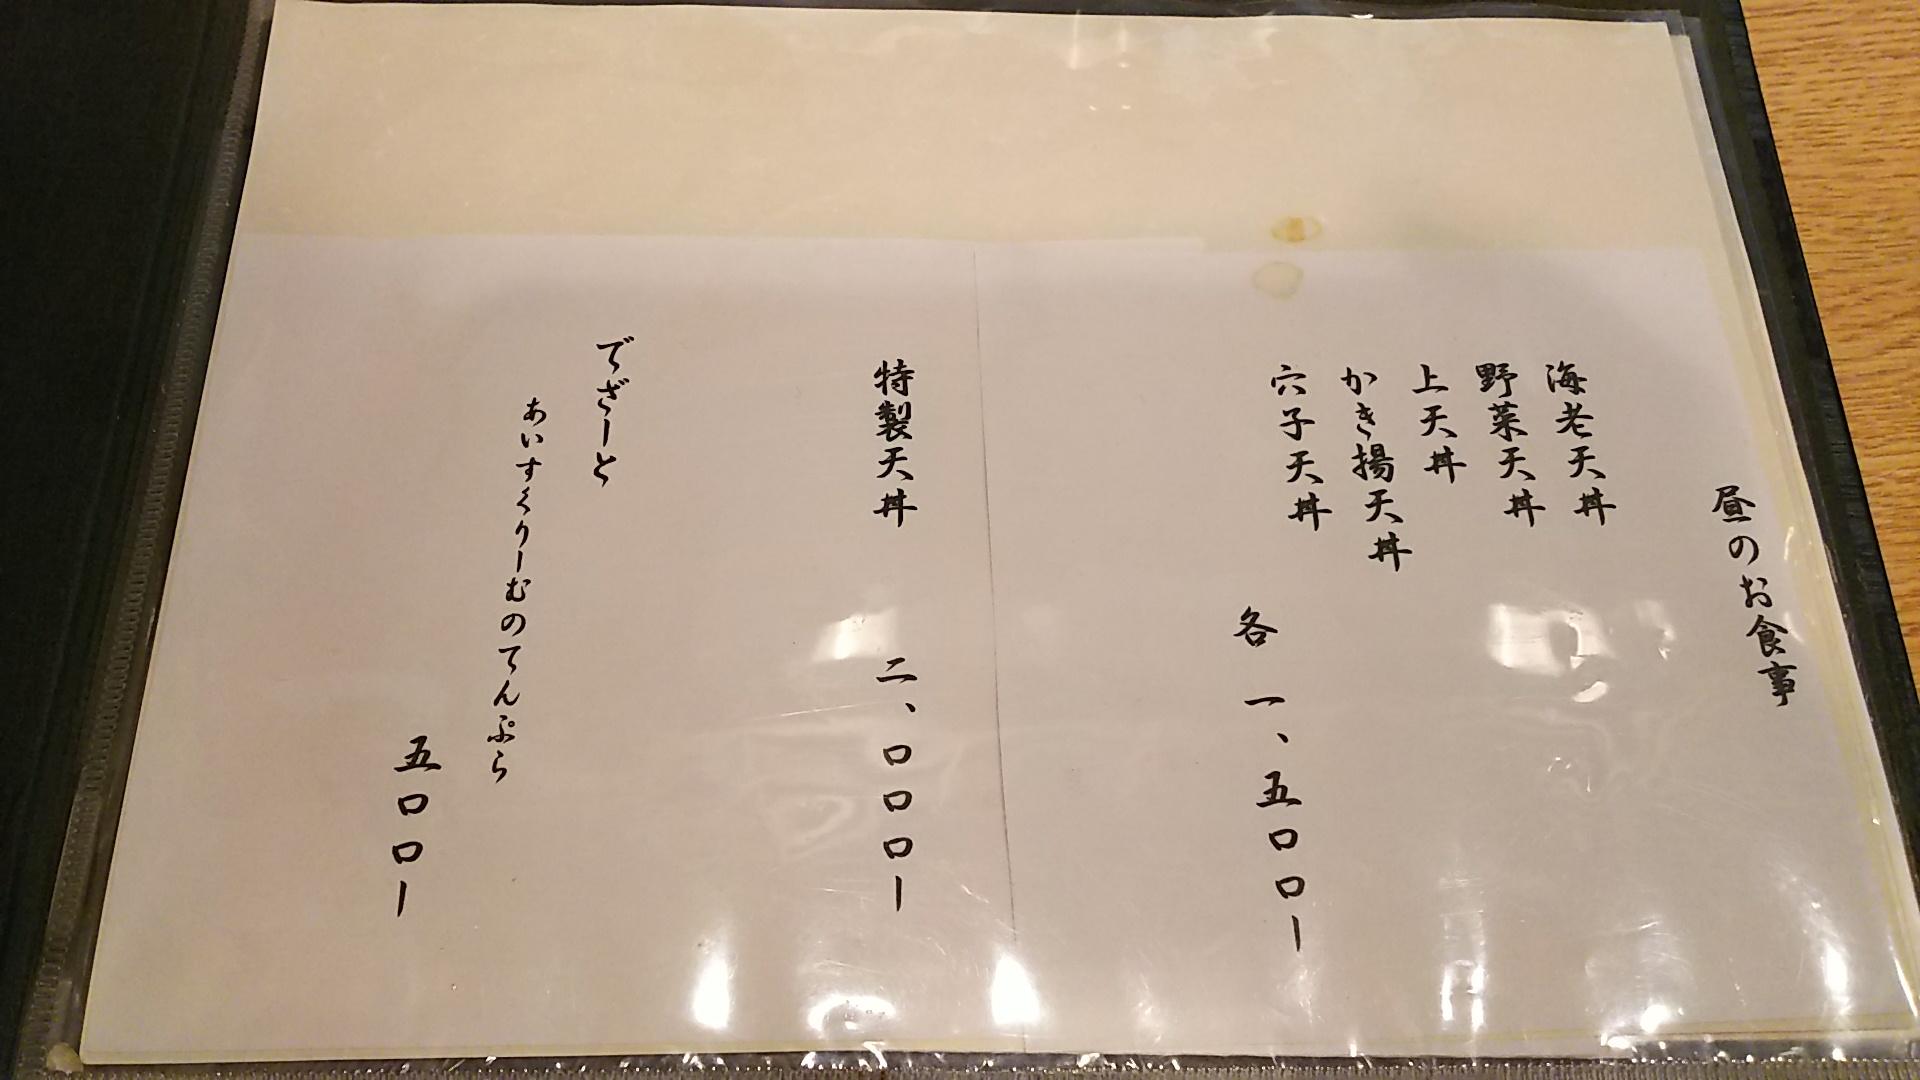 昼のお食事
海老天丼
野菜天丼
上天丼
かき揚天丼
穴子天丼
各 一、五〇〇ー
特製天丼 二、〇〇〇ー
でざーと
あいすくりーむのてんぷら
五〇〇ー